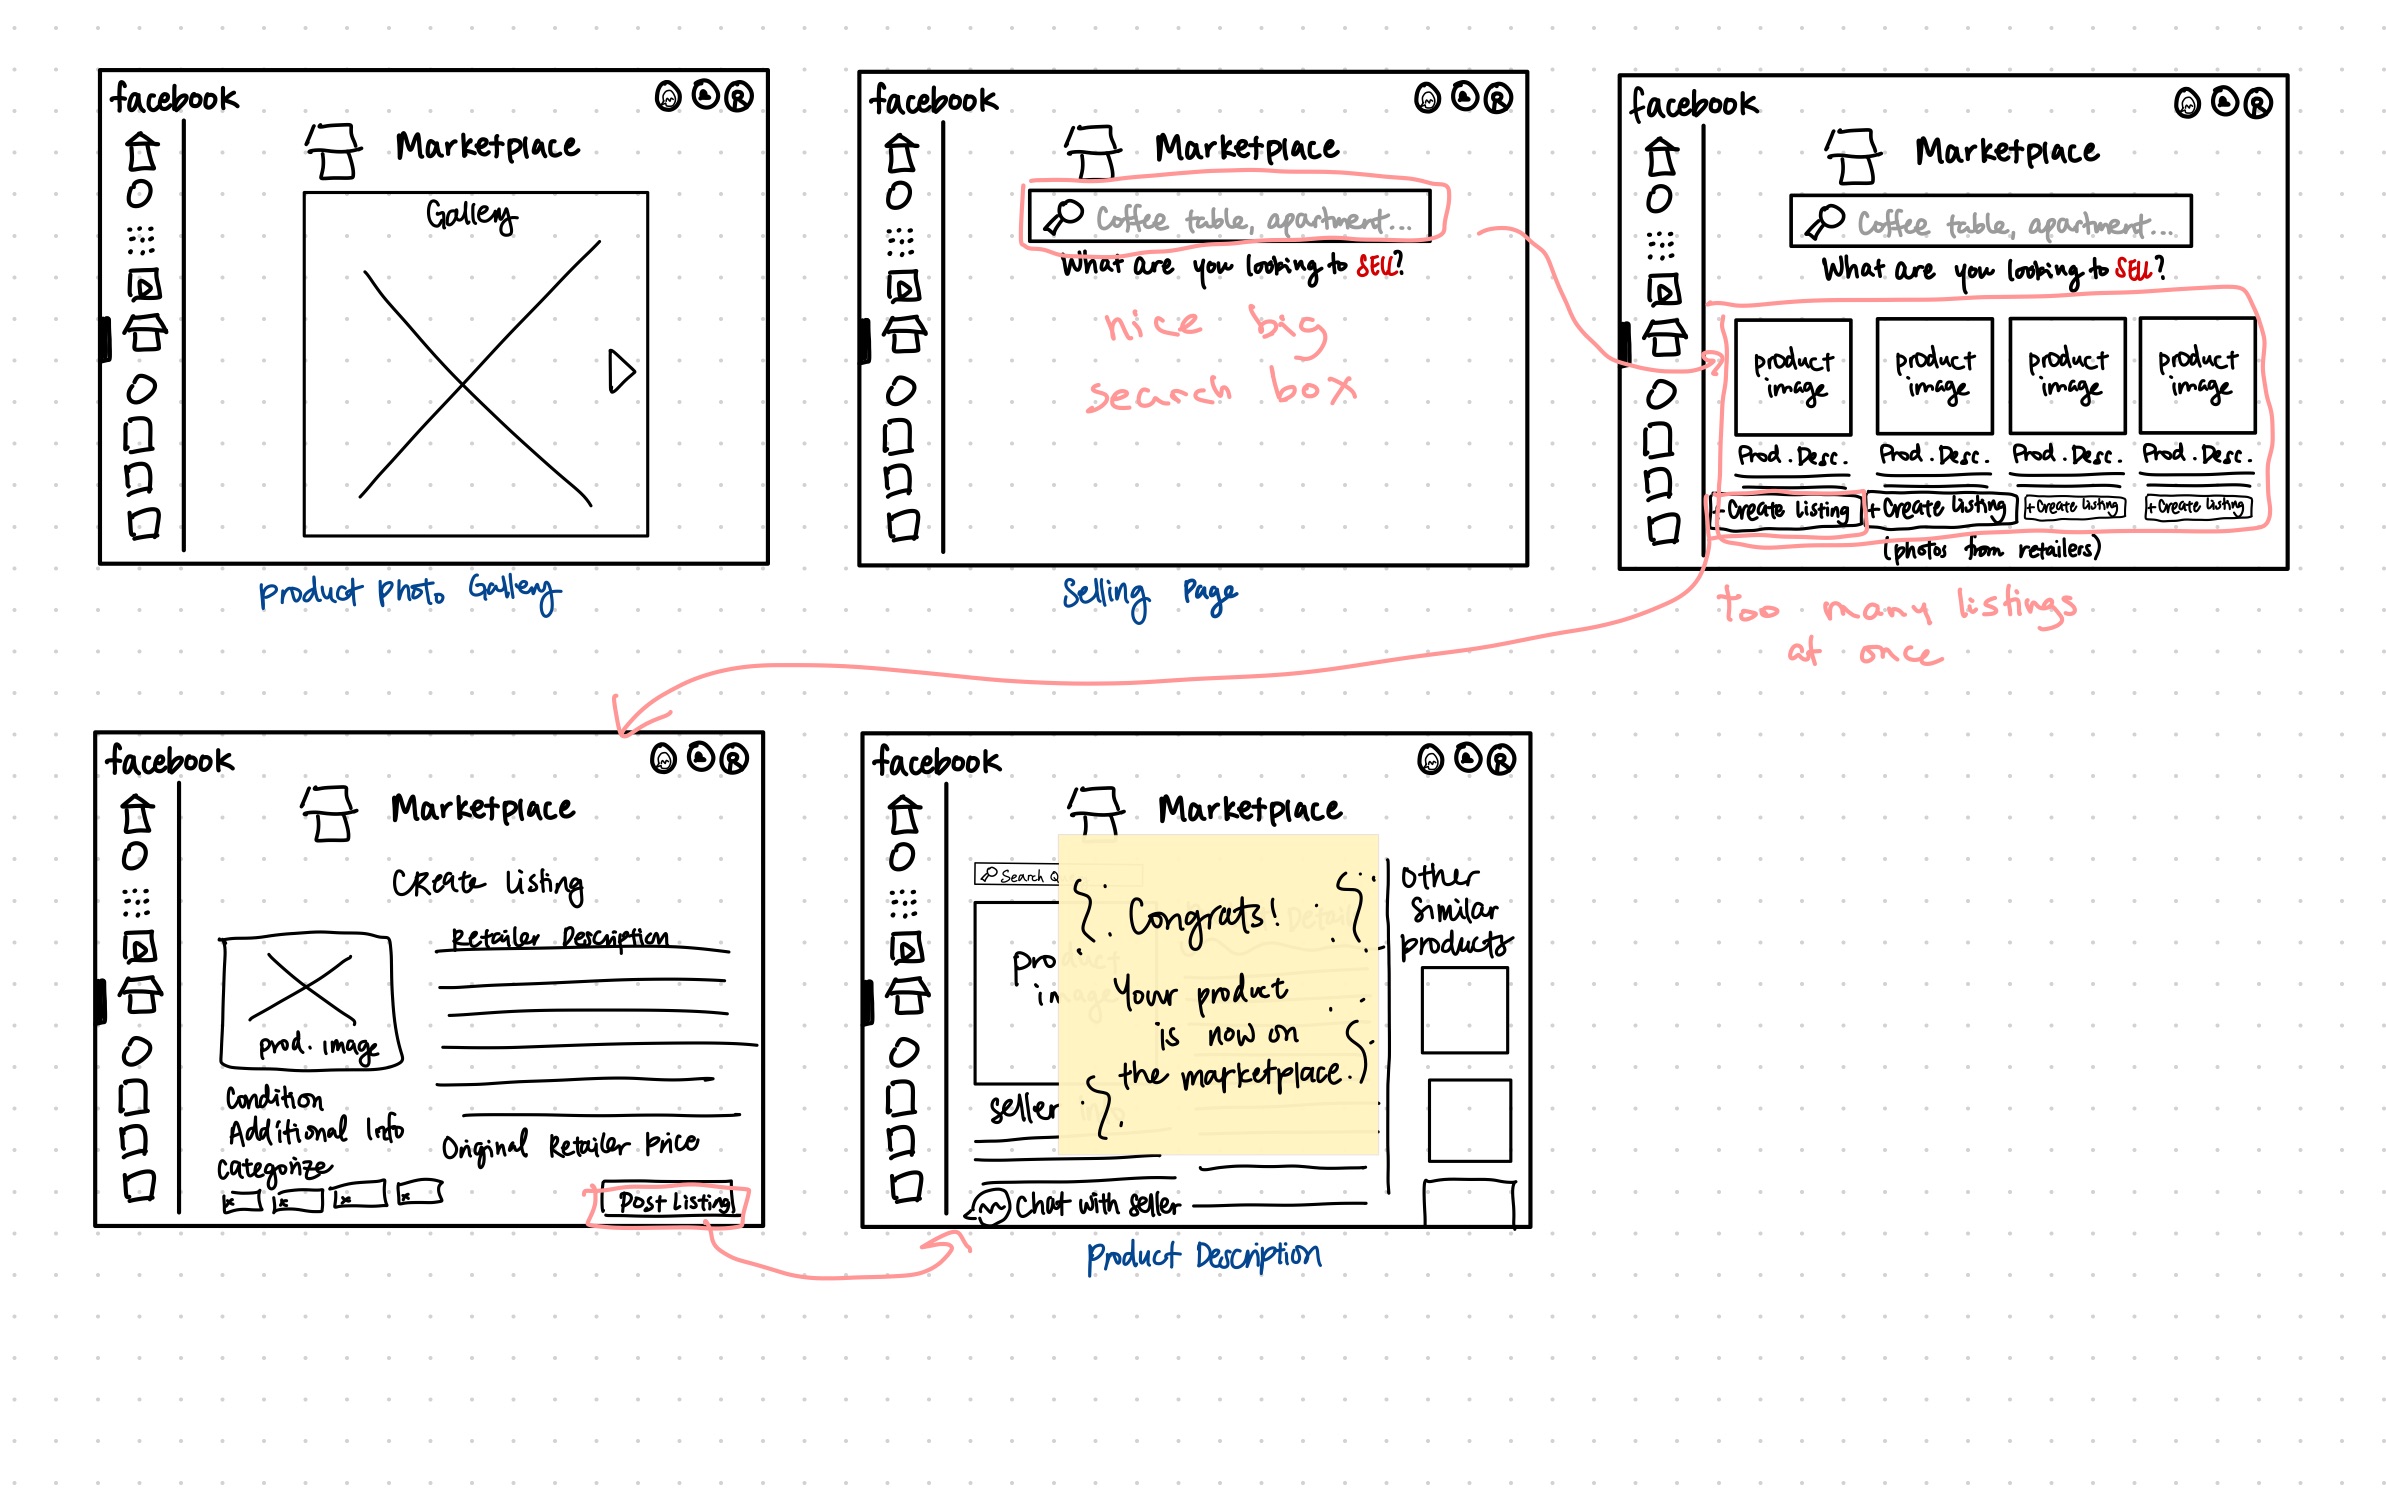 facebook
Marketplace
Gallery
Product Photo Gallery
facebook
R
Marketplace
Coffee table, apartment...
What are you looking to SELL?
nice big
search box
Selling Page
facebook
R
Marketplace
Coffee table, apartment...
What are you looking to SELL?
product image
product image
product image
product image
Prod. Desc.
Prod. Desc.
Prod. Desc.
Prod. Desc.
+ Create Listing
+ Create Listing
+ Create Listing
+ Create Listing
(photos from retailers)
too many listings
at once
facebook
R
Marketplace
Create Listing
Retailer Description
prod. image
Condition
Additional Info
Categorize
x x x x
Original Retailer Price
Post Listing
facebook
R
Marketplace
Search
Congrats!
Your product
is now on
the marketplace.
product
image
seller
Chat with seller
Other
similar
products
Product Description